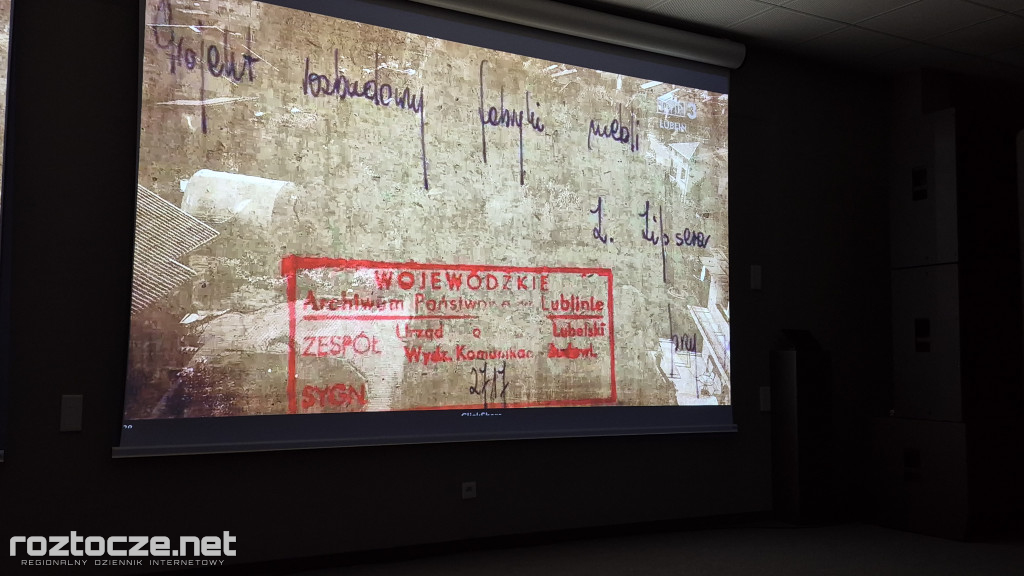 Projekt rozbudowy fabryki mebli
LUBLIN
L. Lipsera
WOJEWÓDZKIE
Archiwum Państwowe w Lublinie
ZESPÓŁ Urząd Lubelski
Wydz. Komunikac. Budowl.
2717
SYGN
ClickShare
roztocze.net
REGIONALNY DZIENNIK INTERNETOWY